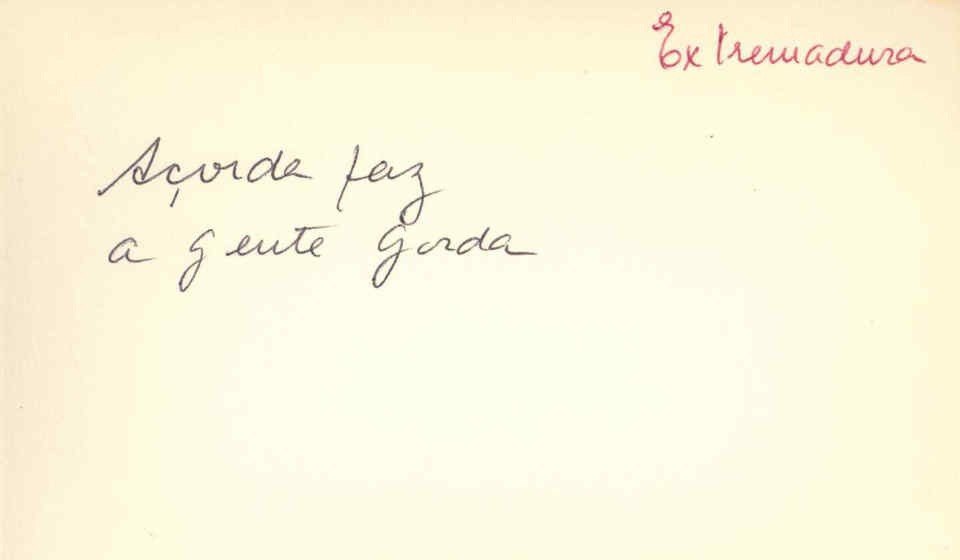 Extremadura
Açorda faz
a gente gorda